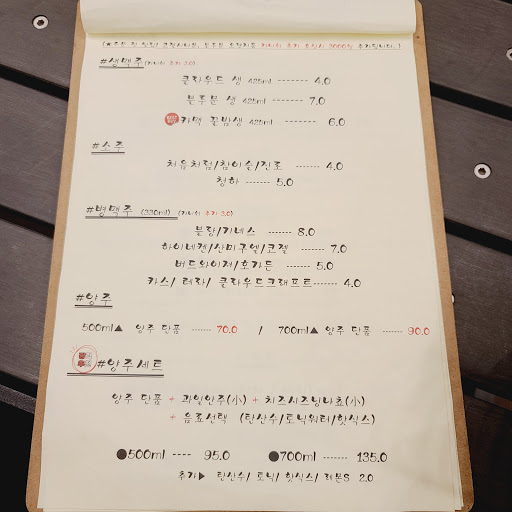 #생맥주 (가니쉬 추가 3.0)
클라우드 생 425ml ------- 4.0
블루문 생 425ml ------- 7.0
카맥 꿀밤생 425ml ------- 6.0
#소주
처음처럼/참이슬/진로 ------- 4.0
청하 ------- 5.0
#병맥주 (330ml) (가니쉬 추가 3.0)
블랑/기네스 ------ 8.0
하이네켄/산미구엘/코젤 ------- 7.0
버드와이저/호가든 ------ 5.0
카스/ 테라/ 클라우드크래프트------ 4.0
#양주
500ml▲ 양주 단품 ------ 70.0 / 700ml▲ 양주 단품 ------ 90.0
#양주세트
양주 단품 + 과일안주(小) + 치즈시즈닝나쵸(小)
+ 음료선택 (탄산수/토닉워터/핫식스)
●500ml ---- 95.0 ●700ml ------ 135.0
추가▶ 탄산수/ 토닉/ 핫식스/ 레몬S 2.0